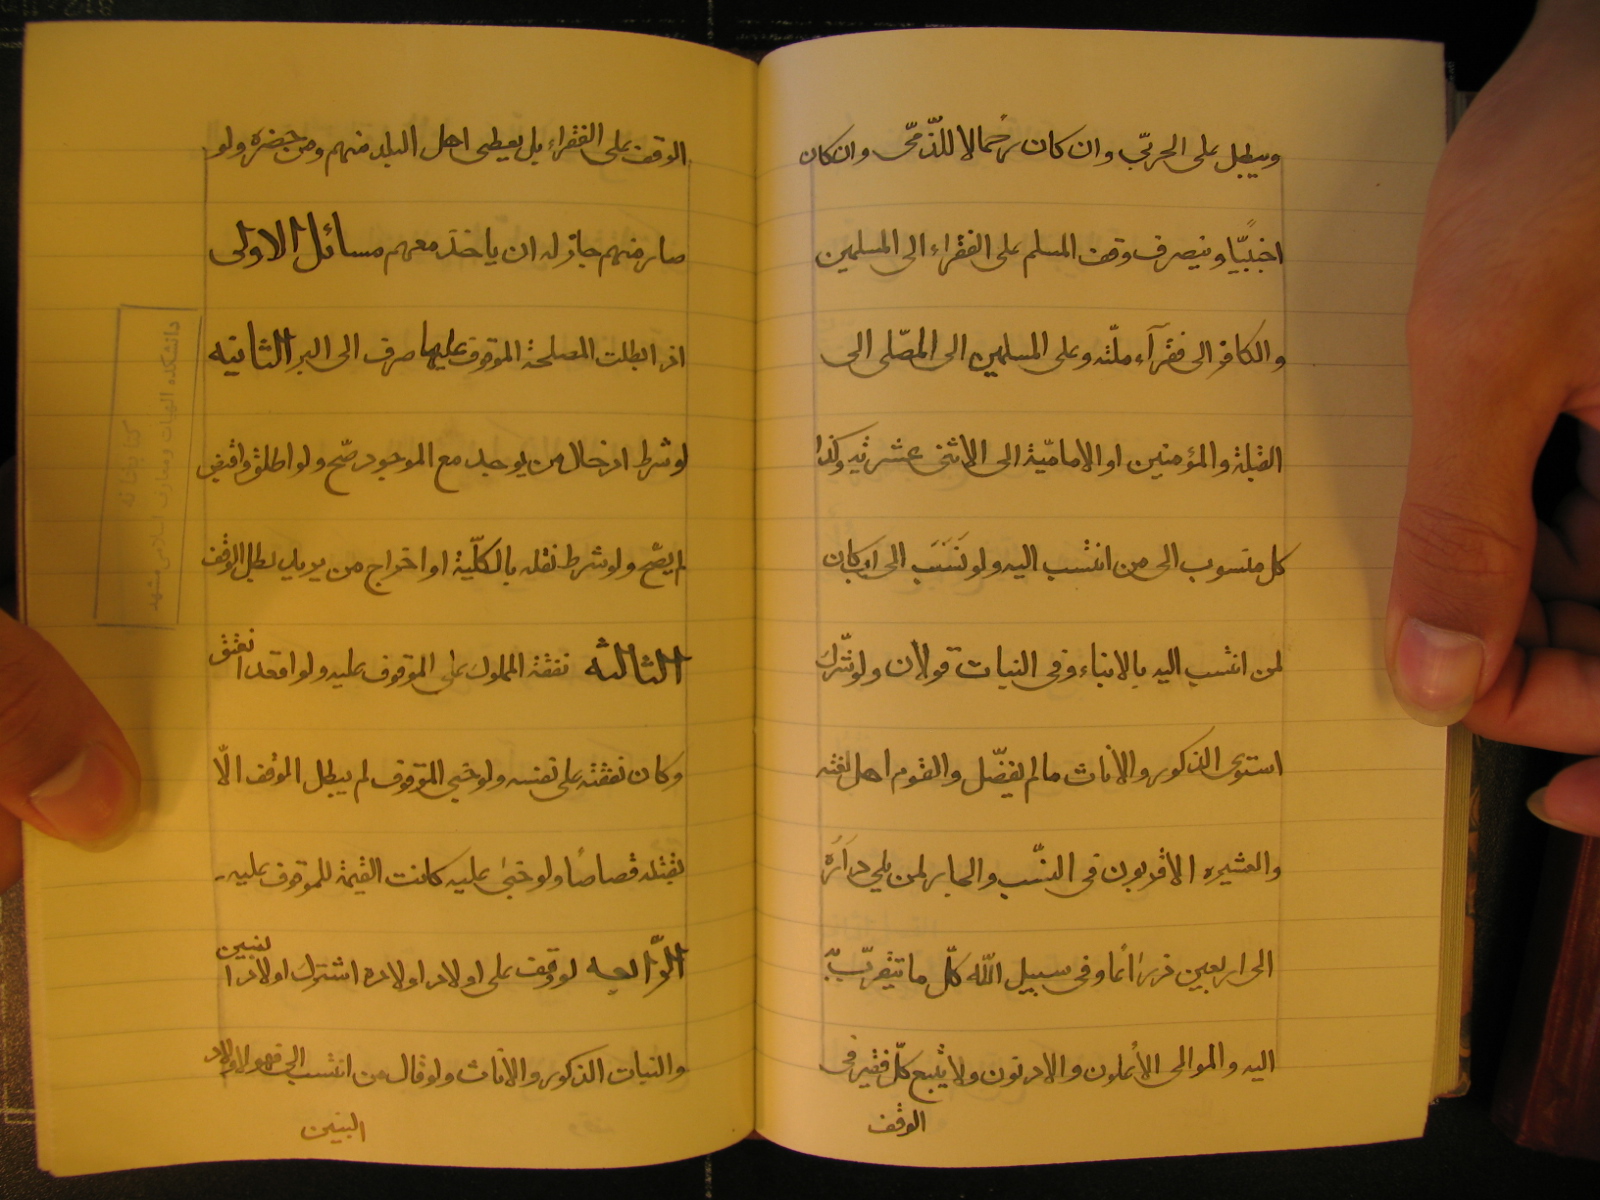 ويبطل على الحربّي وان كان رحما لا للذّمّى وان كان
اجنبيّا وينصرف وقف المسلم على الفقراء الى المسلمين
والكافر الى فقرآء ملّته وعلى المسلمين الى المصّلى الى
القبلة والمؤمنين او الاماميّة الى الاثنى عشريّه وكذا
كل منسوب الى من انتسب اليه ولو نَسَبَ الى اب كان
لمن انتسب اليه بالابناء وفى البنات قولان ولو شرّك
استوى الذكور والاناث مالم يفضّل والقوم اهل لغته
والعشيره الاقربون فى النّسب والجار لمن يلي دارَه
الى اربعين ذراعًا وفى سبيل اللّه كلّ ما يتقرّب بّه
اليه والموالى الأعلون والادنون ولا يتبع كلّ فقير فى
الوقف
الوقف على الفقراء بل يعطى اهل البلد منهم ومن حضره ولو
صار منهم جاز له ان ياخذ معهم مسائل الاولى
اذا بطلت المصلحة الموقوف عليها صرف الى البر الثانيه
لو شرط ادخال من يوجد مع الموجود صّح ولو اطلق واقبض
لم يصّح ولو شرط نقله بالكلّية او اخراج من يريد بطل الوقف
الثالثه نفقة المملوك على الموقوف عليه ولو اقعد انعتق
وكان نفقته على نفسه ولو جنى الموقوف لم يبطل الوقف الّا
بقتله قصاصًا ولو جنى عليه كانت القيمة للموقوف عليه
الرّابعه لو وقف على اولاد اولاده اشترك اولاد البنين
والبنات الذكور والاناث ولو قال من انتسب الى فهو لاولاد
البنين
دانشکده الهیات و معارف اسلامی مشهد